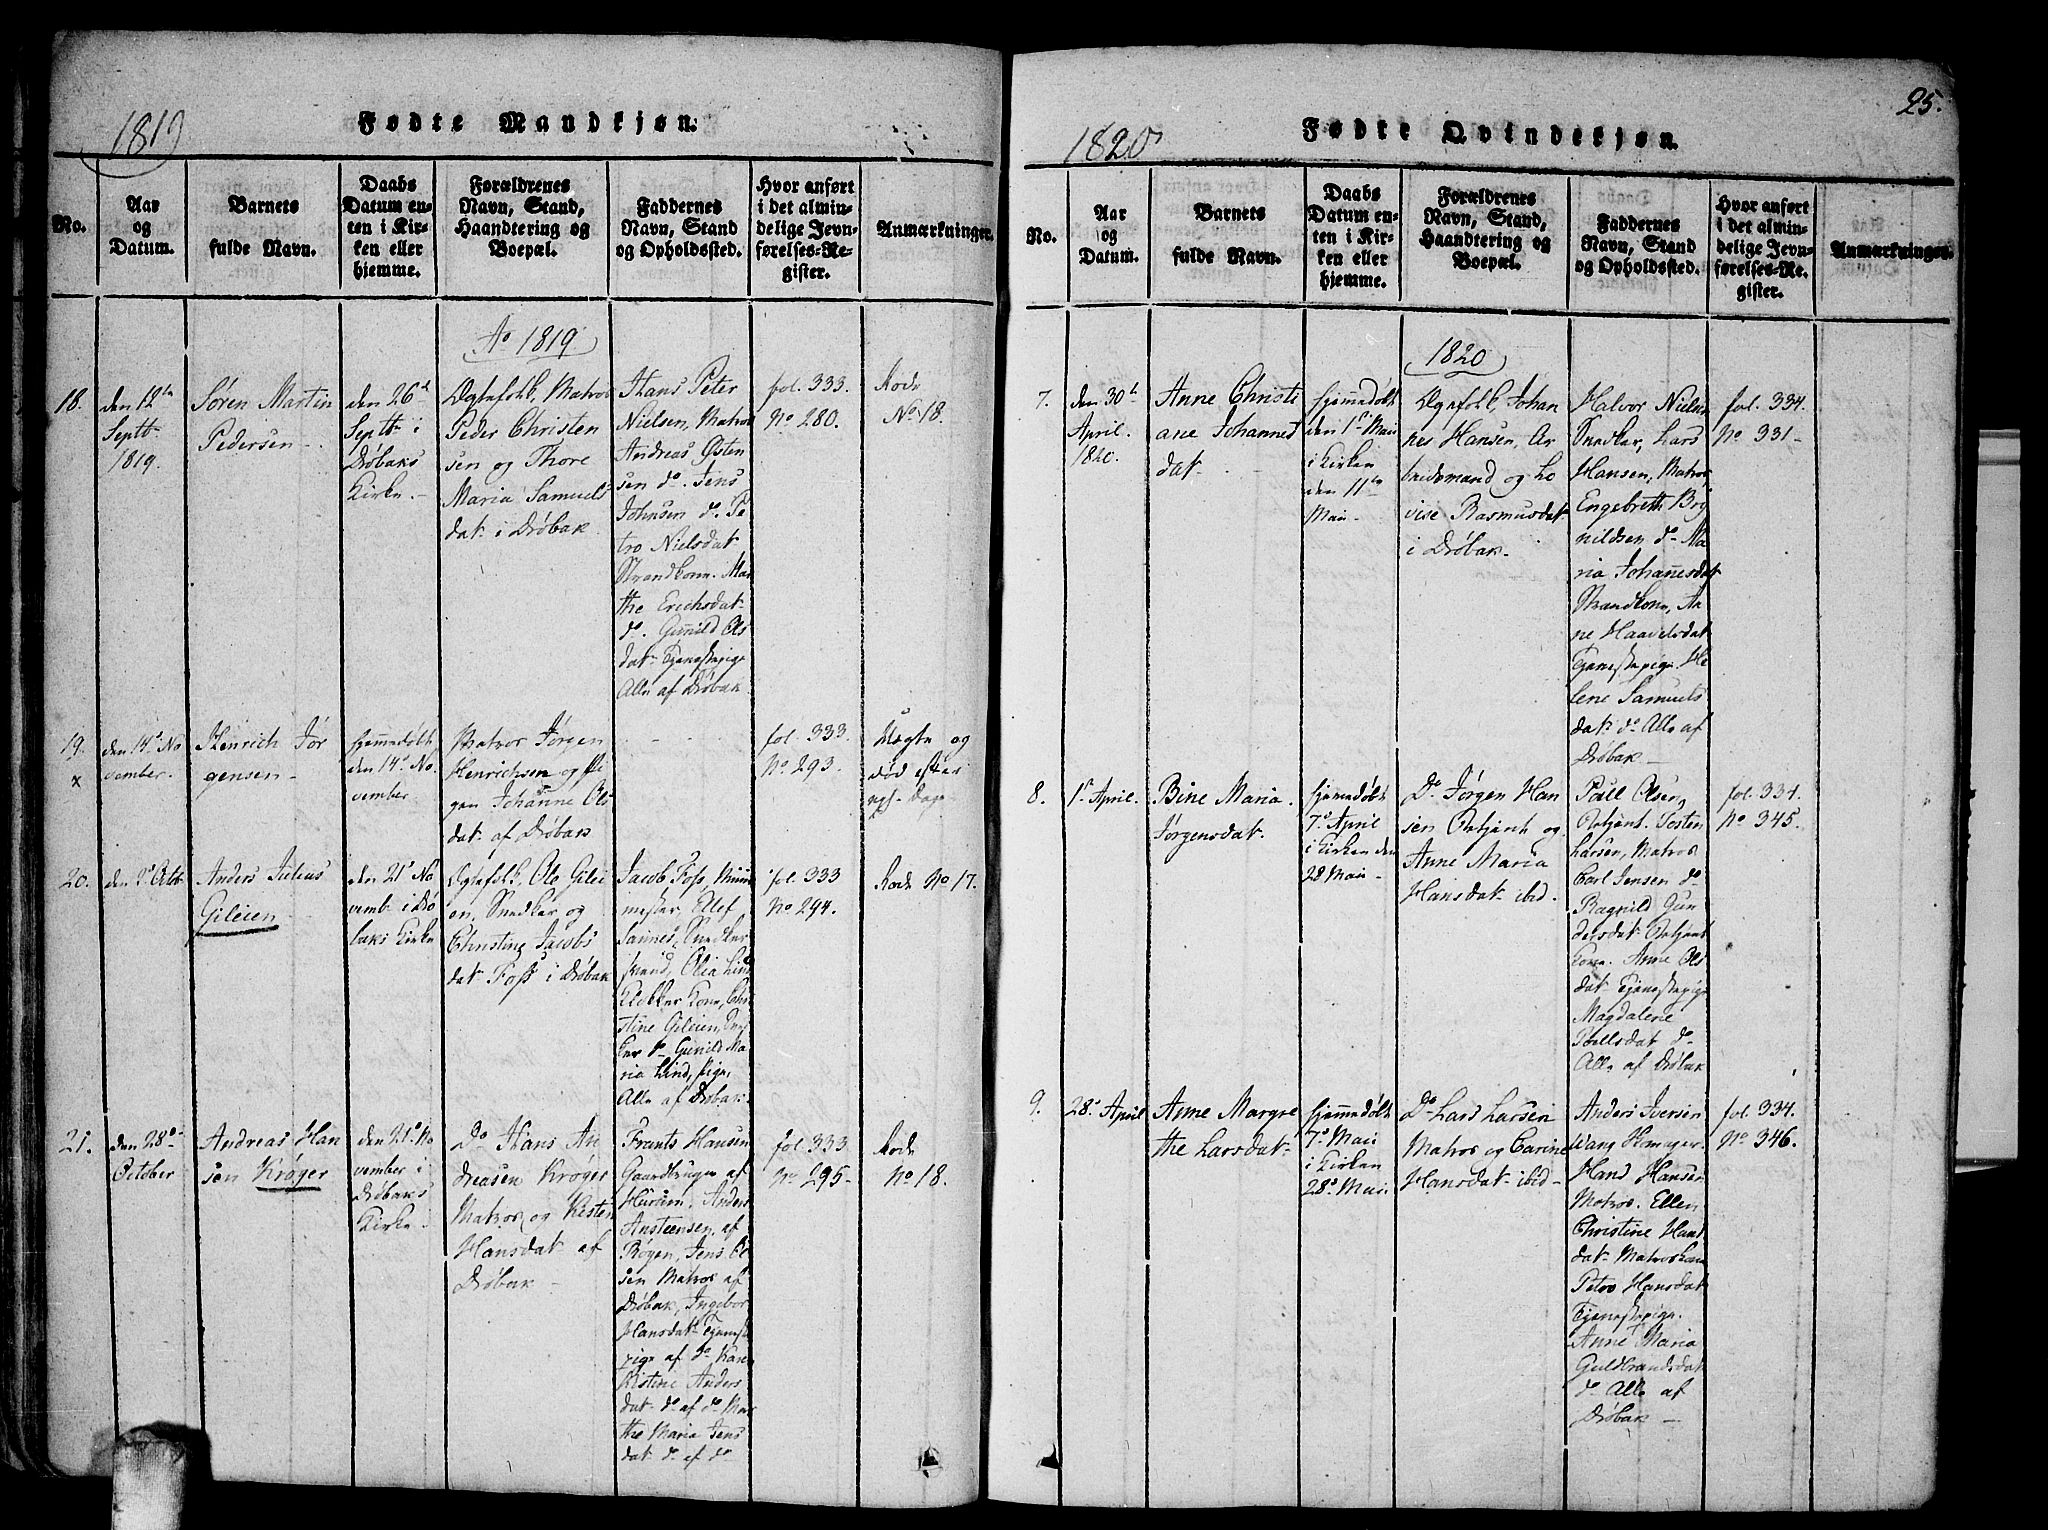 1819
Fødte Mandkjøn.
No.
Aar
og
Datum.
Barnets
fulde Navn.
Daabs
Datum en-
ten i Kir-
ken eller
hjemme.
Forældrenes
Navn, Stand,
Haandtering og
Boepæl.
Faddernes
Navn, Stand
og Opholdssted.
Hvor anført
i det almin-
delige Jevn-
førelses-Re-
gister.
Anmærkninger.
Ao 1819
18.
den 12te
Septt.
1819.
Søren Martin
Pedersen
den 26d
Septt i
Drøbaks
Kirke.
Ægtefolk, Matros
Peder Christen
sen og Thore
Maria Samuels
dat i Drøbak
Hans Peter
Nielsen, Matros
Andreas Østen
sen do. Jens
Johnsen do. Pe
tro Nielsdat
Strandkone. Mar
the Erichsdat
do. Guñild Ols
dat Tjenestepige
Alle af Drøbak
fol. 333.
No 280.
Rode
No 18.
19.
x
den 14de No
vember.
Henrich Jør
gensen
hjemmedøbt
den 14de No
vember
Matros Jørgen
Henrichsen og Pi
gen Johanne Ols
dat af Drøbak
fol. 333
No. 293.
Uægte og
død efter
Dage
20.
den 2d Octb
Anders Julius
Gileien
den 21de No
vemb i Drø
baks Kirke
Ægtefolk, Ole Gilei
en, Snedker og
Christine Jacobs
dat Foss i Drøbak
Jacob Foss Muur
mester, Ellef
Sannes, Snedker
svend, Olia Lind
Klokker Kone, Chri
stine Gileien, Sned
ker do Gunild Ma
ria Lind, pige,
Alle af Drøbak
fol. 333
No 294.
Rode No 17.
21.
den 28de
October
Andreas Han
sen Krøger
den 21de No
vember i
Drøbaks
Kirke.
Do Hans An
dreasen Krøger
Matros og Kisten
Hansdat af
Drøbak
Frants Hansen
Gaardbruger af
Hurum, Anders
Ansteensen af
Røgen, Jens Ol
sen Matros af
Drøbak, Ingebor
Hansdat Tjeneste
pige af do Karen
Kistine Anders
dat do af do Mar
the Maria Jens
dat do af do
fol. 333
No 295
Rode
No 18.
25.
1820
Fødte Qvindekjøn.
No.
Aar
og
Datum.
Barnets
fulde Navn.
Daabs
Datum en-
ten i Kir-
ken eller
hjemme.
Forældrenes
Navn, Stand,
Haandtering og
Boepæl.
Faddernes
Navn, Stand
og Opholdssted.
Hvor anført
i det almin-
delige Jevn-
førelses-Re-
gister.
Anmærkninger.
1820
7.
den 30te
April.
1820.
Anne Christi
ane Johannes
dat.
hjemmedøbt
den 1ste Maii
i Kirken
den 11te
Maii
Ægtefolk, Johan
nes Hansen, Ar
beidsmand og Lo
vise Rasmusdat.
i Drøbak
Halvor Nielsen
Snedker, Lars
Hansen, Matros
Engebreth Bry
nildsen do Ma
ria Johañesdat
Strandkone, An
ne Haavelsdat
Tjenestepige, He
lene Samuels
dat do Alle af
Drøbak
fol. 334.
No 331
8.
1ste April.
Bine Maria
Jørgensdat.
hjemmedøbt
7de April
i Kirken den
28 Maii
Do Jørgen Han
sen Betjent og
Anne Maria
Hansdat ibid.
Poull Olsen,
Betjent. Tosten
Larsen, Matros
Carl Jensen do
Ragnild Gun
dersdat Betjent
Kone. Anne Ols
dat Tjenestepige
Magdalene
Poulsdat do
Alle af Drøbak
fol. 334.
No 345.
9.
28de April
Anne Margre
the Larsdat
hjemmedøbt
7de Maii
i Kirken
28de Maii
Do Lars Larsen
Matros og Carine
Hansdat ibid
Anders Iversen
Wang Skomager
Hans Hansen
Matros. Ellen
Christine Hans
dat Matroskone
Petro Hansdat
Tjenestepige.
Anne Maria
Guldbrandsdat
do Alle af
Drøbak
fol. 334.
No 346.